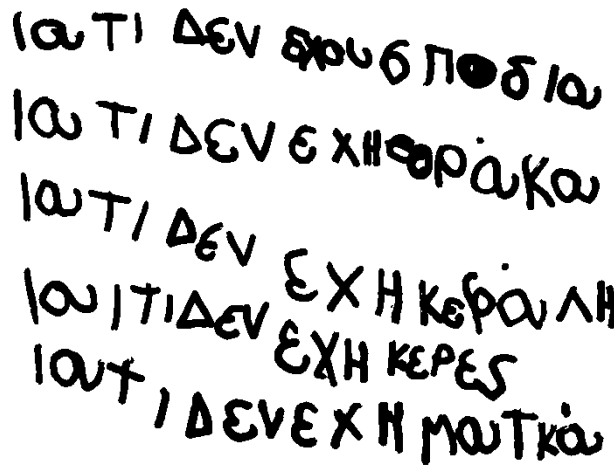 ιατι ΔΕΝ εχουσ ποδια
ιατι ΔΕΝ ΕΧΗ φράκα
ιατι ΔΕΝ ΕΧΗ κεφάλη
ιαιτι ΔΕΝ ΕΧΗ κερες
ιατι ΔΕΝ ΕΧΗ ματκά